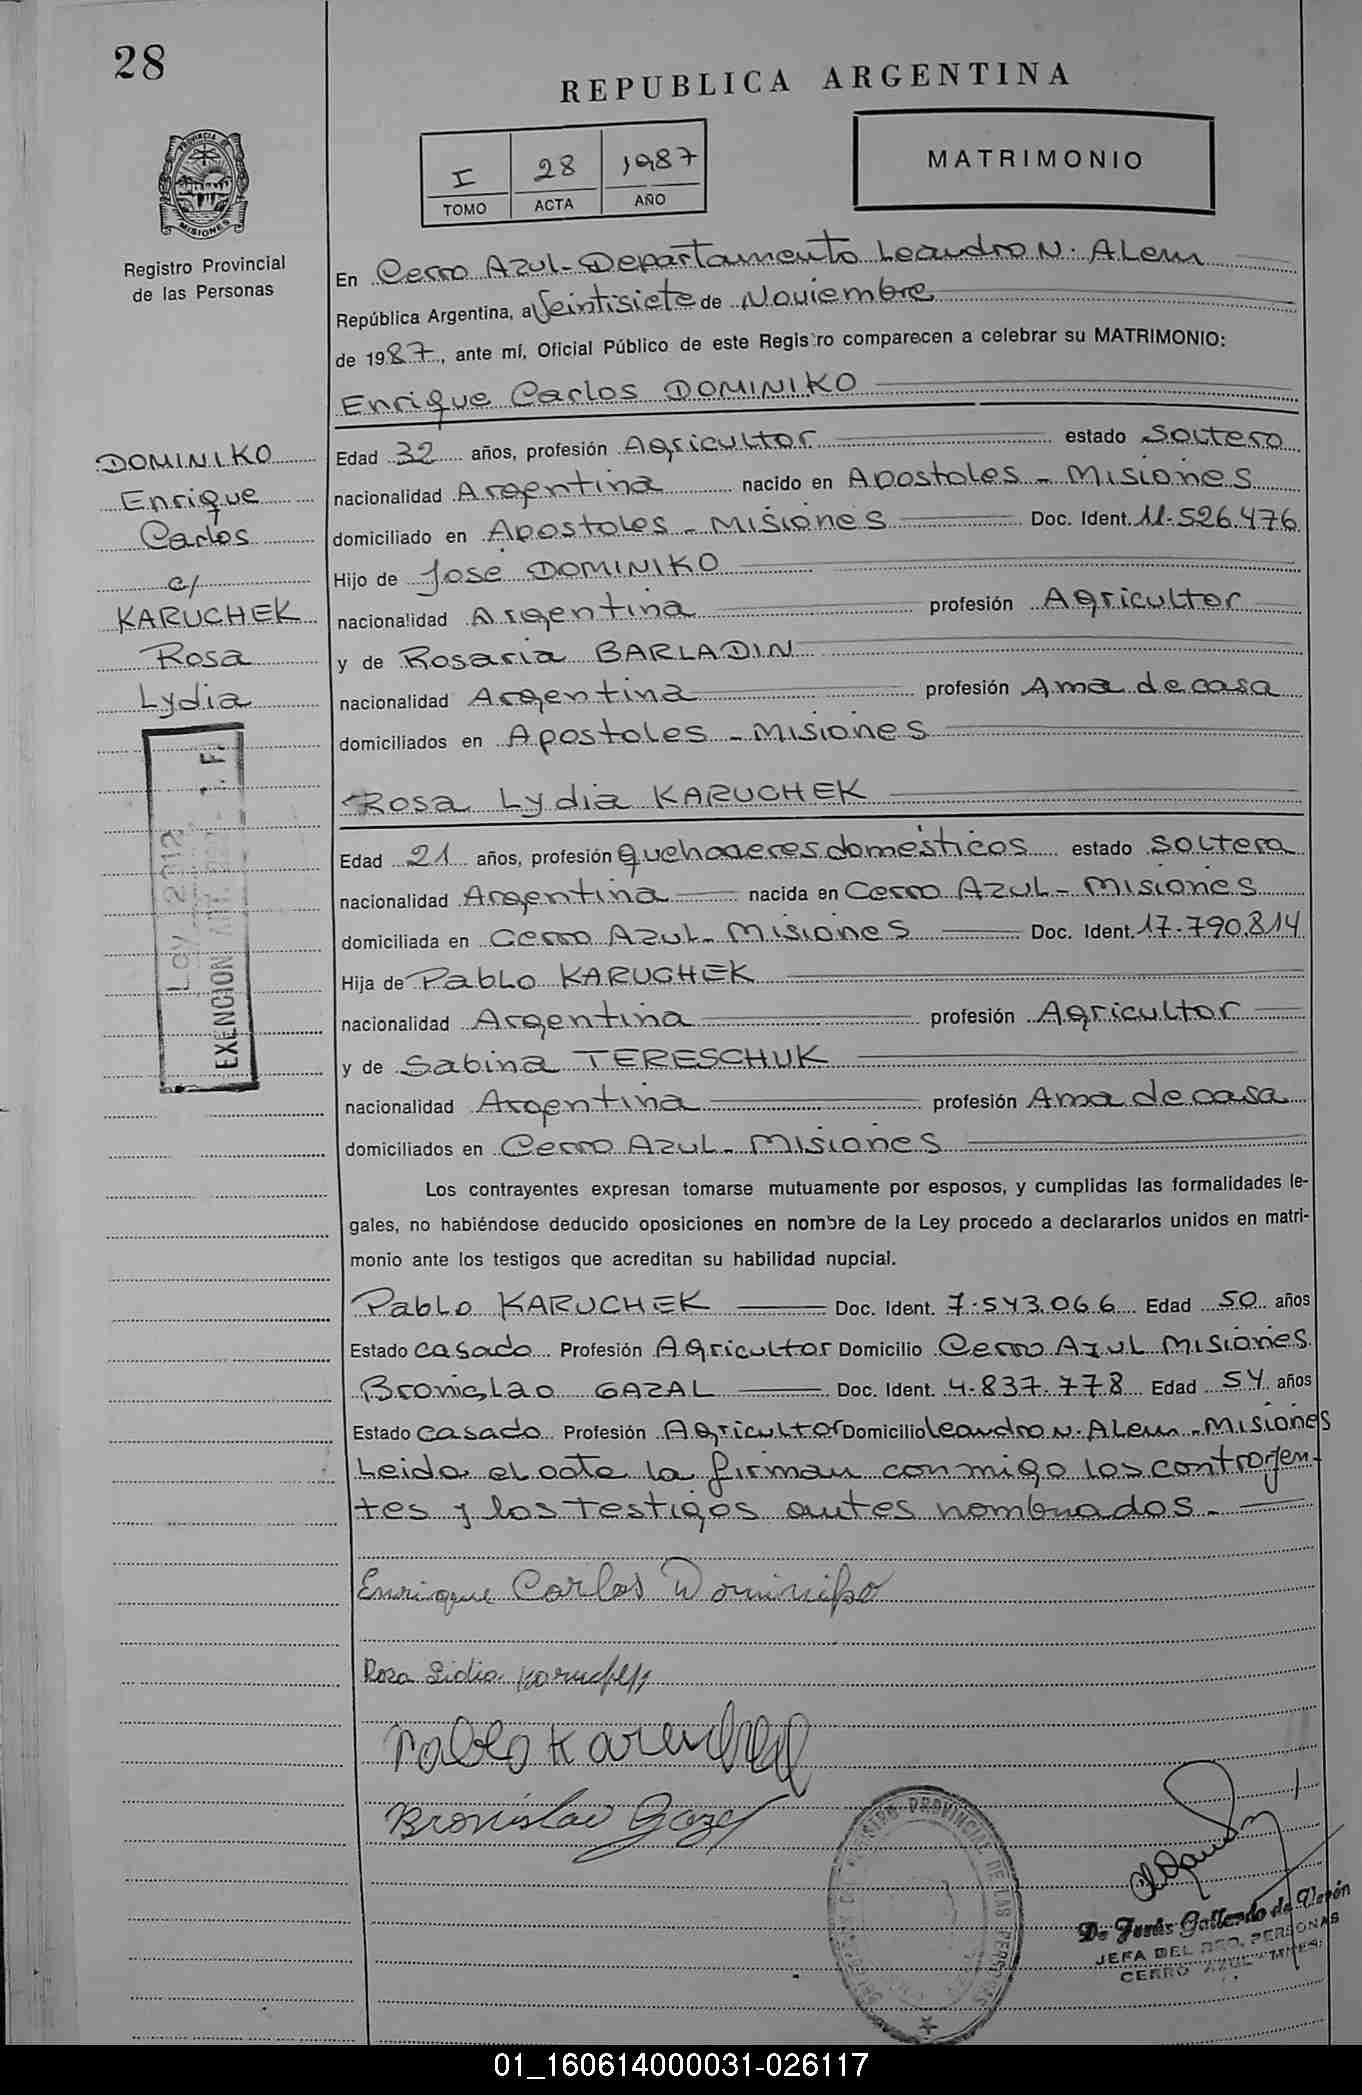 28
REPUBLICA ARGENTINA
I 28 1987
TOMO ACTA AÑO
MATRIMONIO
PROVINCIA DE
MISIONES
Registro Provincial
de las Personas
En Cerro Azul - Departamento Leandro N. Alem
República Argentina, a Veintisiete de Noviembre
de 1987, ante mí, Oficial Público de este Registro comparecen a celebrar su MATRIMONIO:
Enrique Carlos DOMINIKO
DOMINIKO
Enrique
Carlos
c/
KARUCHEK
Rosa
Lydia
Edad 32 años, profesión Agricultor estado Soltero
nacionalidad Argentina nacido en Apostoles - Misiones
domiciliado en Apostoles - Misiones Doc. Ident. 11.526.476
Hijo de José DOMINIKO
nacionalidad Argentina profesión Agricultor
y de Rosaria BARLADIN
nacionalidad Argentina profesión Ama de casa
domiciliados en Apostoles - Misiones
Rosa Lydia KARUCHEK
Edad 21 años, profesión quehaceres domésticos estado soltera
nacionalidad Argentina nacida en Cerro Azul - Misiones
domiciliada en Cerro Azul - Misiones Doc. Ident. 17.790.814
Hija de Pablo KARUCHEK
nacionalidad Argentina profesión Agricultor
y de Sabina TERESCHUK
nacionalidad Argentina profesión Ama de casa
domiciliados en Cerro Azul - Misiones
EXENCION
Los contrayentes expresan tomarse mutuamente por esposos, y cumplidas las formalidades le-
gales, no habiéndose deducido oposiciones en nombre de la Ley procedo a declararlos unidos en matri-
monio ante los testigos que acreditan su habilidad nupcial.
Pablo KARUCHEK Doc. Ident. 7.543.066 Edad 50 años
Estado casado Profesión Agricultor Domicilio Cerro Azul Misiones
Bronislao GAZAL Doc. Ident. 4.837.778 Edad 54 años
Estado casado Profesión Agricultor Domicilio Leandro N. Alem - Misiones
Leida el acta la firman conmigo los contrayen-
tes y los testigos antes nombrados.-
Enrique Carlos Dominiko
Rosa Lidia Karuchek
Pablo Karuchek
Bronislao Gazal
REGISTRO PROVINCIAL DE LAS PERSONAS
De Jesús Gallardo de Verón
JEFA DEL REG. PERSONAS
CERRO AZUL - MNES.
01_160614000031-026117